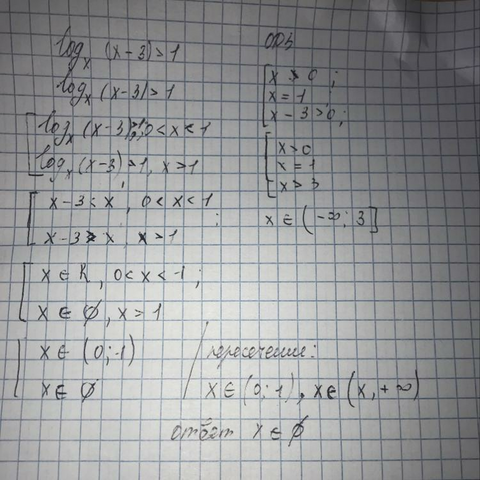 log_x (x-3) > 1
log_x (x-3) > 1
[ log_x (x-3) > 1, 0 < x < 1
log_x (x-3) > 1, x > 1
[ x-3 < x, 0 < x < 1
x-3 > x, x > 1
[ x ∈ R, 0 < x < 1;
x ∈ ∅, x > 1
[ x ∈ (0; 1)
x ∈ ∅
ОДЗ
[ x > 0;
x = 1
x - 3 > 0;
[ x > 0
x = 1
x > 3
x ∈ (-∞; 3]
пересечение:
x ∈ (0; 1), x ∈ (x, +∞)
ответ x ∈ ∅